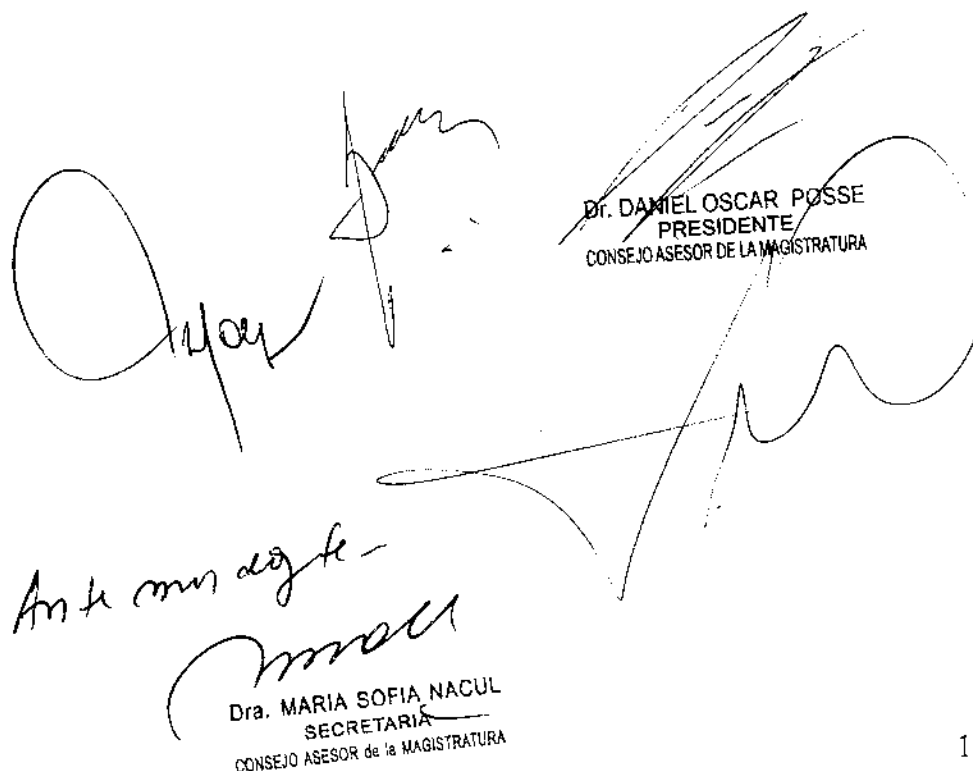 Dr. DANIEL OSCAR POSSE
PRESIDENTE
CONSEJO ASESOR DE LA MAGISTRATURA
Ante mi doy fe -
Dra. MARIA SOFIA NACUL
SECRETARIA
CONSEJO ASESOR de la MAGISTRATURA
1